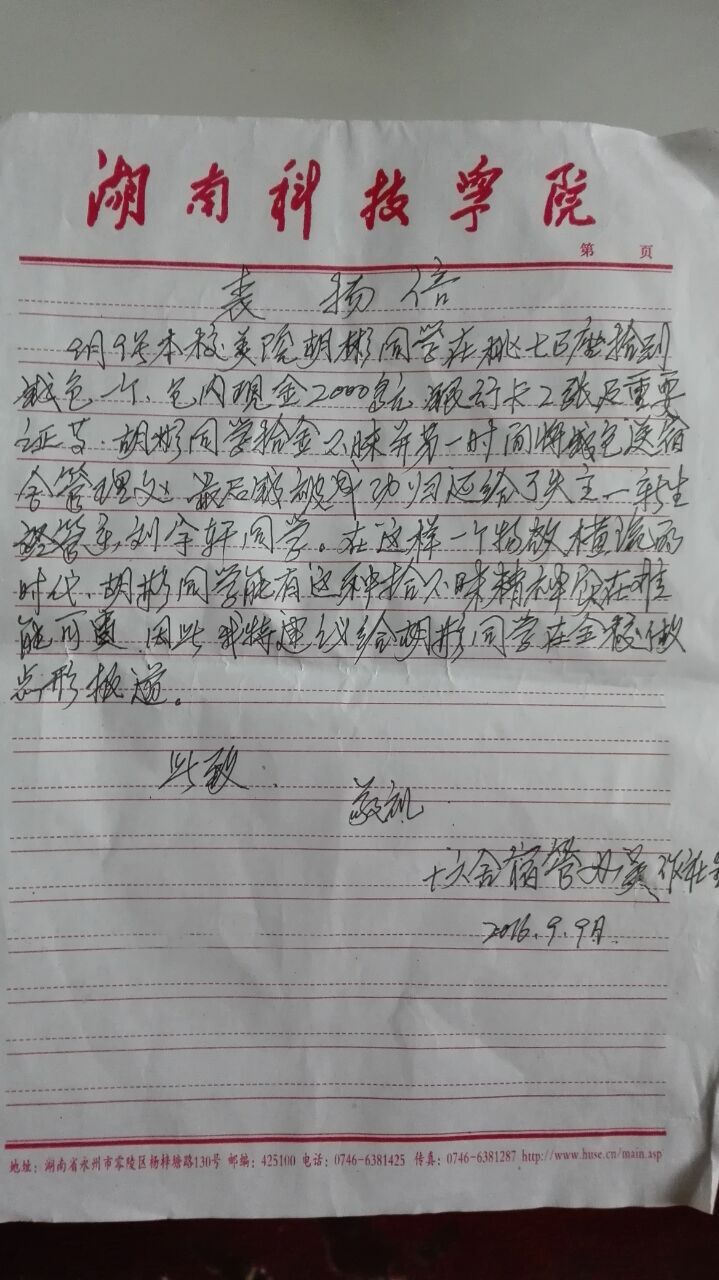 湖南科技学院
第 页
表扬信
9月9号本校美院胡彬同学在桃七百座拾到
钱包一个、包内现金2000多元 银行卡2张及重要
证等.胡彬同学拾金不昧并第一时间将钱包送宿
舍管理处 最后被成功归还给了失主一新生
经管系刘余轩同学。在这样一个物欲横流的
时代、胡彬同学能有这种拾不昧精神实在难
能可贵 因此我特建议给胡彬同学在全校做
点形报道。
此致.
敬礼
十六舍宿管
2016.9.9月.
地址：湖南省永州市零陵区杨梓塘路130号 邮编：425100 电话：0746-6381425 传真：0746-6381287 http://www.huse.cn/main.asp